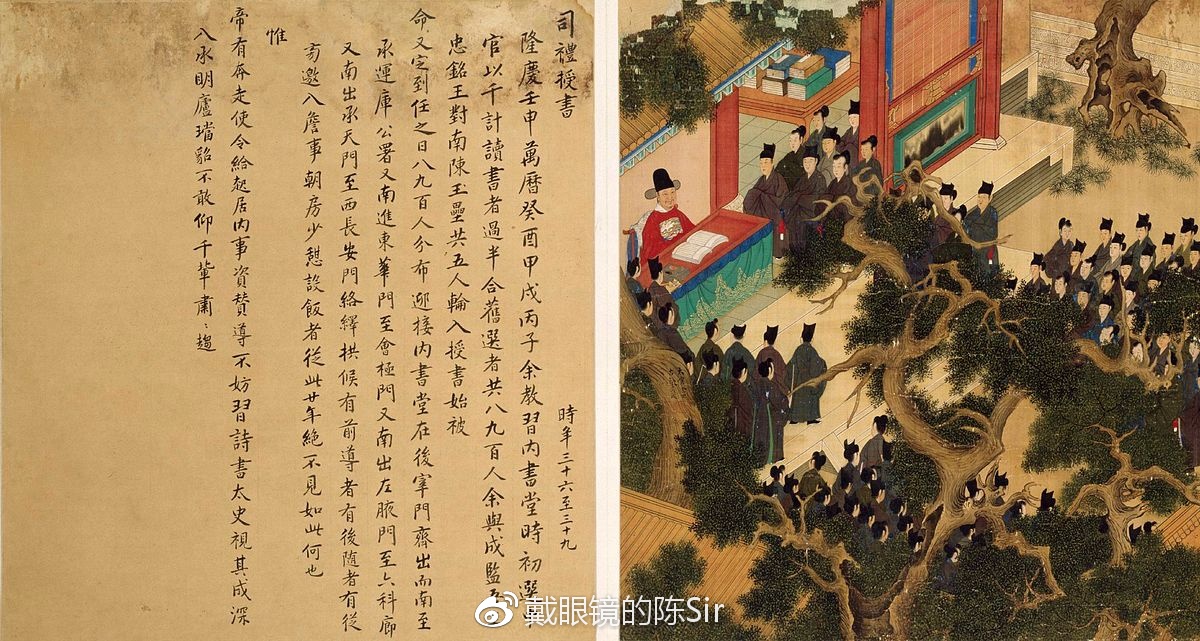 司禮授書
時年三十六至三十九
隆慶壬申萬曆癸酉甲戌丙子余教習內書堂時初選
官以千計讀書者過半合舊選者共八九百人余與成監吾
忠銘王對南陳玉壘共五人輪入授書始被
命又定到任之日八九百人分布迎接內書堂在後宰門齊出而南至
承運庫公署又南進東華門至會極門又南出左腋門至六科廊
又南出承天門至西長安門絡繹拱候有前導者有後隨者有後
邀入詹事朝房少憩設飯者從此廿年絕不見如此何也
惟
帝有奔走使令給起居內事資贊導不妨習詩書太史視其成深
入承明廬璫貂不敢仰千輩肅〻趨
戴眼镜的陈Sir